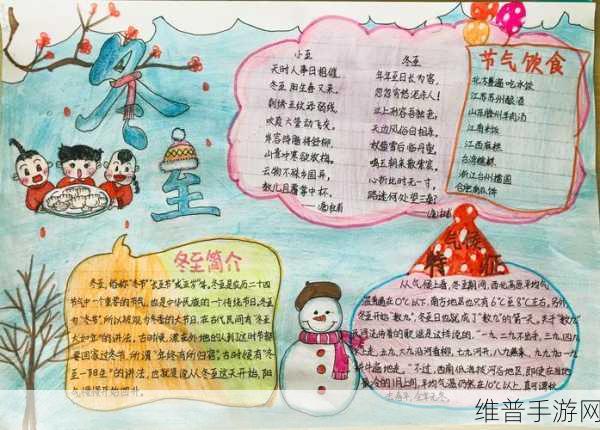 冬至
小至
天时人事日相催,
冬至阳生春又来。
刺绣五纹添弱线,
吹葭六管动飞灰。
岸容待腊将舒柳,
山意冲寒欲放梅。
云物不殊乡国异,
教儿且覆掌中杯。
——唐·杜甫
冬至
年年至日长为客,
忽忽穷愁泥杀人!
江上形容吾独老,
天边风俗自相亲。
杖藜雪后临丹壑,
鸣玉朝来散紫宸。
心折此时无一寸,
路迷何处望三秦?
节气饮食
北方普遍吃水饺
江苏苏州酿酒
山东滕州羊肉汤
江南米饭
江西麻糍
台湾糯糕
浙江台州擂圆
合肥南瓜饼
冬至简介
冬至,俗称“冬节”“长至节”或“亚岁”等。冬至是农历二十四
节气中一个重要的节气,也是中华民族的一个传统节日。冬至
为“冬节”,所以被视为冬季的大节日,在古代民间有“冬至
大如年”的讲法。古时候,漂在外地的人到了这时节都
要回家过冬节,所谓“年终有所归宿”。古时候有“冬
至一阳生”的讲法,也就是说从冬至这天开始,阳
气慢慢开始回升。
气候
特征
从气候上看,冬至期间,西北高原平均气
温普遍在0℃以下,南方地区也只有6℃至8℃左右。另外
冬至开始“数九”,冬至日也就成了“数九”的第一天。关于“数九”
民间流传着的歌谣是这样说的:“一九、二九不出手,三九、四九
冰上走,五九、六九沿河看柳,七九河开,八九燕来,九九加一九
耕牛遍地走。”不过,西南低海拔河谷地区,即使在当地
最冷的1月上旬,平均气温仍然在10℃以上,真可谓秋
去春平,全年无冬。
维普手游网